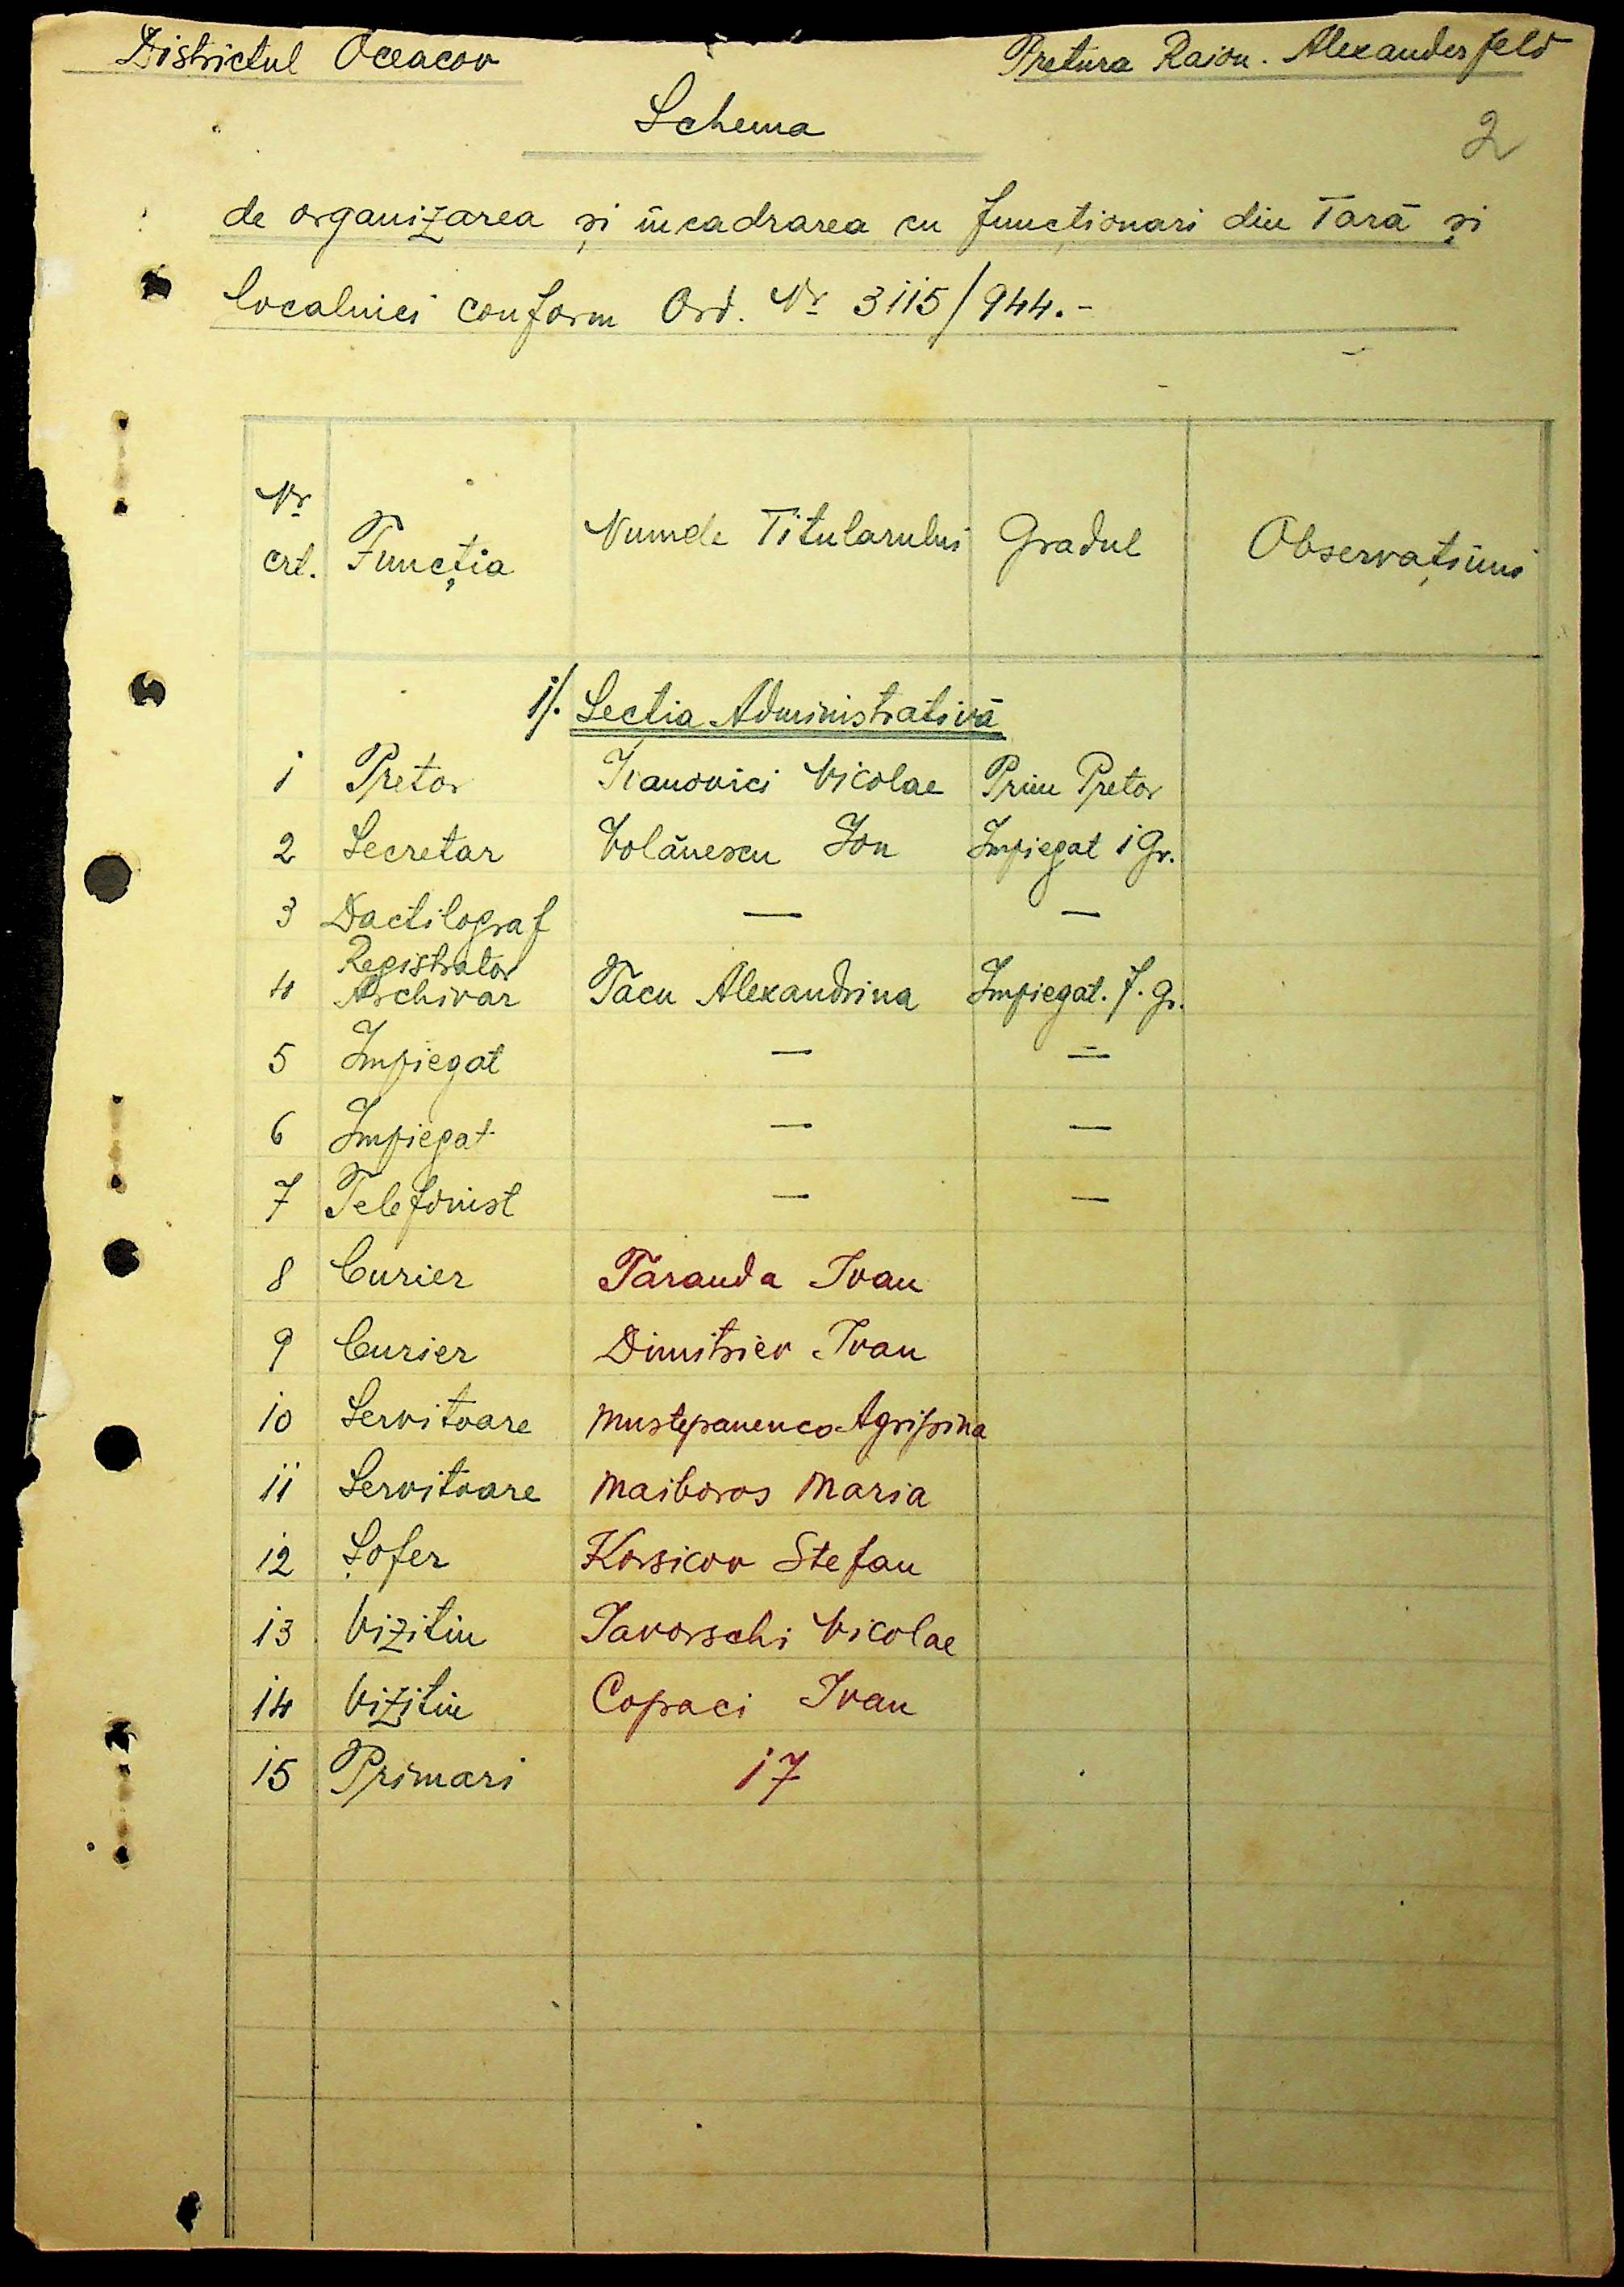 Districtul Oceacov
Pretura Raion. Alexanderfeld
2
Schema
de organizarea și încadrarea cu funcționari din Tară și
localnici conform Ord. Nr 3115/944.-
Nr crt.
Funcția
Numele Titularului
Gradul
Observațiuni
1/. Sectia Administrativă
1 Pretor Ivanovici Nicolae Prim Pretor
2 Secretar Volănescu Ion Impiegat 1 Gr.
3 Dactilograf — —
Registrator
4 Archivar Tacu Alexandrina Impiegat. f. gr.
5 Impiegat — —
6 Impiegat — —
7 Telefonist — —
8 Curier Taranda Ivan
9 Curier Dimitriev Ivan
10 Servitoare Mustepanenco Agripina
11 Servitoare Maiboros Maria
12 Șofer Korsicov Stefan
13 Vizitiu Iavorschi Nicolae
14 Vizitiu Copaci Ivan
15 Primari 17